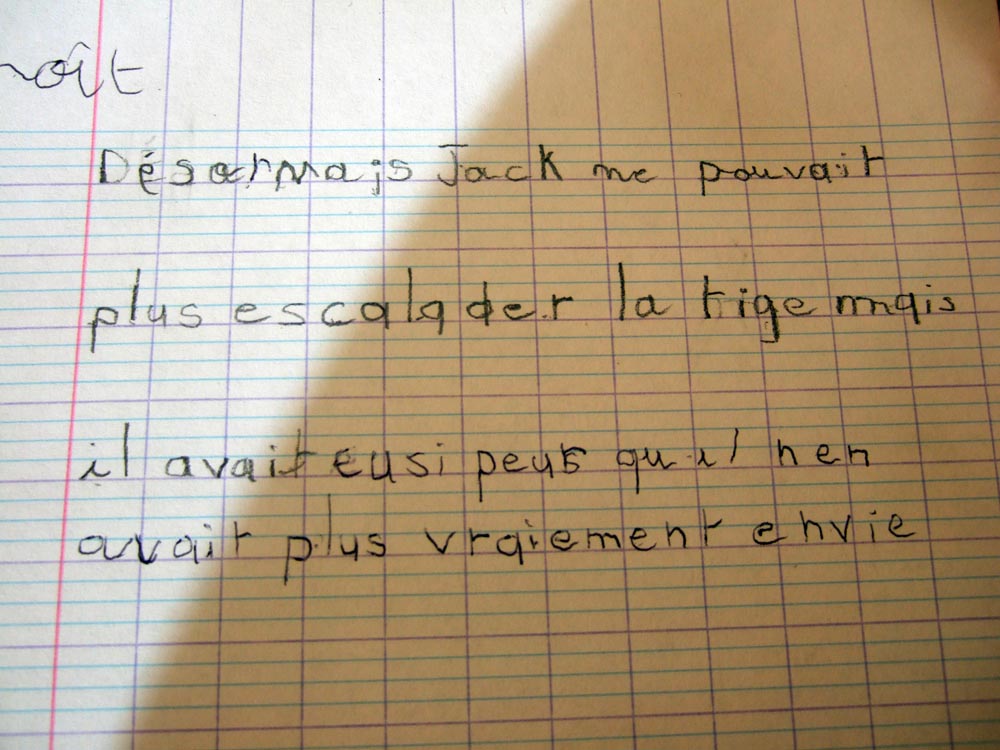 Désormais Jack ne pouvait
plus escalader la tige mais
il avait eu si peur qu'il n'en
avait plus vraiment envie